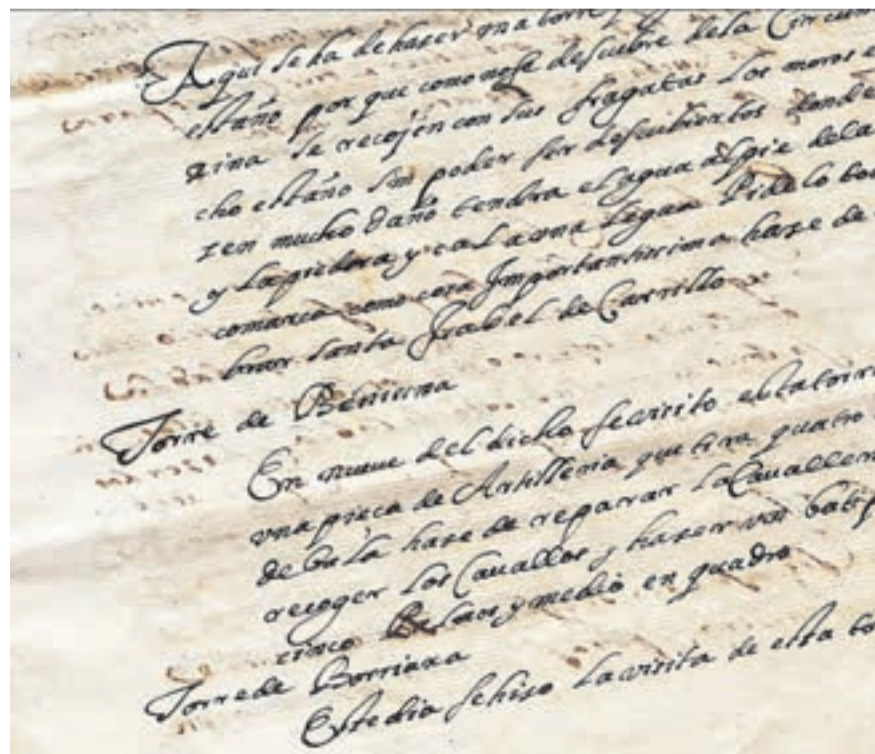 Aqui se ha de hazer una torre
estaño por que como no se descubre dela Circun
zina se recojen con sus fragatas los moros e
cho estaño sin poder ser descubiertos donde
zen mucho daño tendra el agua al pie dela
y la piedra y cal a una legua Pidelo to
comarca como cosa Importantissima hase de
brar santa Isabel de Carrillo
Torre de
En nueve del dicho se visito esta torre
una pieça de Artilleria que tira quatro
de bala hase de reparar la Cavalleri
recoger los Cavallos y hazer un
cinco Palmos y medio en quadro
Torre de Borriana
Este dia se hizo la visita de esta to